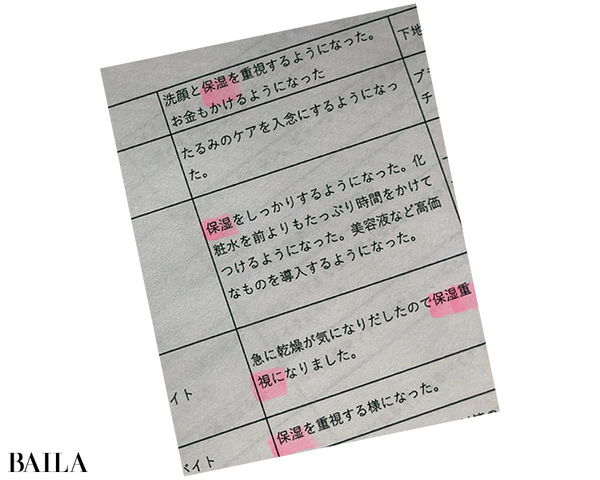 洗顔と保湿を重視するようになった。
お金もかけるようになった
下地
たるみのケアを入念にするようになっ
た。
保湿をしっかりするようになった。化
粧水を前よりもたっぷり時間をかけて
つけるようになった。美容液など高価
なものを導入するようになった。
急に乾燥が気になりだしたので保湿重
視になりました。
イト
保湿を重視する様になった。
バイト
BAILA